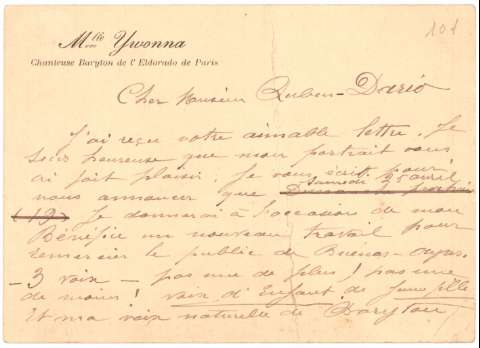 101
Mlle Ywonna
Chanteuse Baryton de l'Eldorado de Paris
Cher Monsieur Ruben-Dario
J'ai reçu votre aimable lettre. Je
suis heureuse que mon portrait vous
ai fait plaisir. Je vous écris pour
Samedi 25 avril
vous annoncer que
(19) Je donnerai à l'occasion de mon
Bénéfice un nouveau travail pour
remercier le public de Buenos-ayres.
- 3 voix - pas une de plus! pas une
de moins! voix d'Enfant de jeune fille
Et ma voix naturelle de Baryton